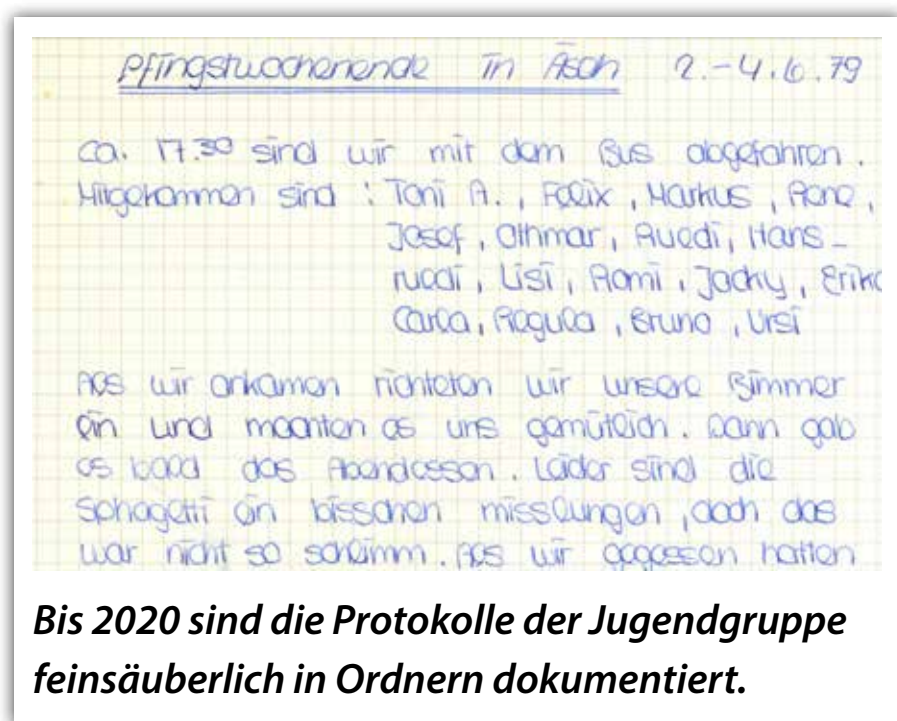 Pfingstwochenende in Äsch 2.-4.6.79
ca. 17.30 sind wir mit dem Bus abgefahren.
Mitgekommen sind : Toni A., Felix, Markus, Rene,
Josef, Othmar, Ruedi, Hans-
ruedi, Lisi, Romi, Jacky, Erika
Carla, Regula, Bruno, Ursi
Als wir ankamen richteten wir unsere Zimmer
ein und machten es uns gemütlich. Dann gab
es bald das Abendessen. Leider sind die
Sphagetti ein bisschen misslungen, doch das
war nicht so schlimm. Als wir gegessen hatten
Bis 2020 sind die Protokolle der Jugendgruppe
feinsäuberlich in Ordnern dokumentiert.